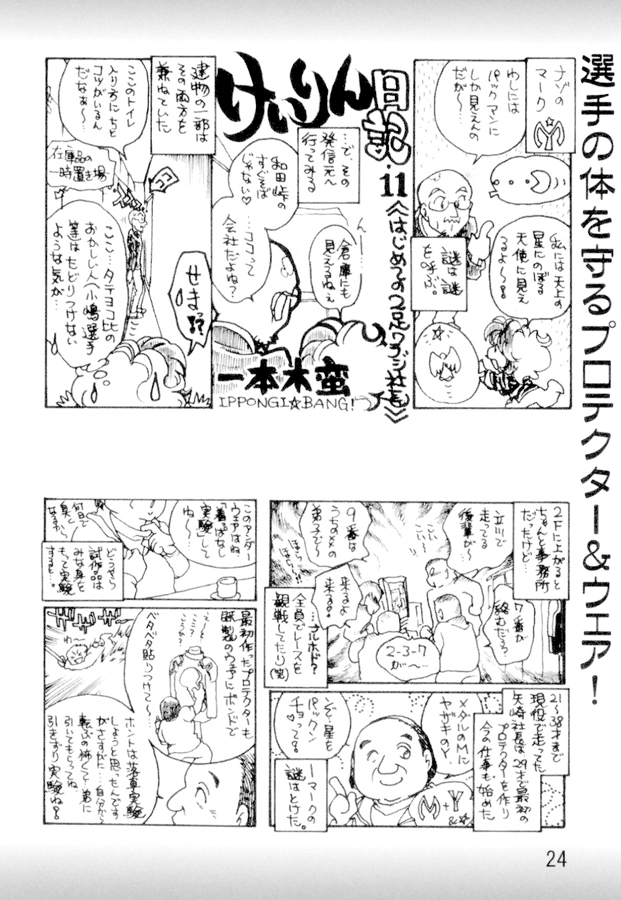 選手の体を守るプロテクター&ウェア!
ナゾの
マーク
わしには
パックマンに
しか見えんの
だが〜…
私には天上の
星にのぼる
天使に見え
るよ〜う?
謎は謎
を呼ぶ。
けいりん日記・11
《はじめての2足ワラジ社長》
一本木蛮
IPPONGI☆BANG!
…で、その
発信元へ
行ってみる
和田峠の
すぐそば
じゃない♡
…ココって
会社だよね?
倉庫にも
見えるねぇ
建物の一部は
その両方を
兼ねていた
ここのトイレ
入り方にちと
コツがいるん
だなぁ〜…
在庫品の
一時置き場
せきっ!?
ここ…タテヨコ比の
おかしい人(小嶋選手
等)はたどりつけない
ような気が…
2Fに上がると
ちゃんと事務所
だったけど…
立川で
走ってる
後輩が〜
9番は
うちの××の
弟子で〜
7番か
絡むたろ?
来るよ
来るよ
2-3-7
が〜
全員でレースを
観戦してたり(笑)
21〜38才まで
現役で走ってた
矢崎社長は29才で最初の
プロテクターを作り
今の仕事も始めた
メタルのMに
ヤザキのY、
んで、星を
パックン
チョってる
M+Y
&☆
マークの
謎はとけた。
このアンダー
ウェアはね
「着っぱなし
実験」して
ね〜
何日で
臭く
なるか
どうやら
試作品は
みな身を
もって実験
すると…
最初作ったプロテクターも
既製のウェアにボンドで
ベタベタ貼りつけて〜
わ〜
ホントは落車実験
しようと思ったんです
がさすがに…自分から
転ぶの怖くて弟に
引いてもらってね
引きずり実験ね!
24